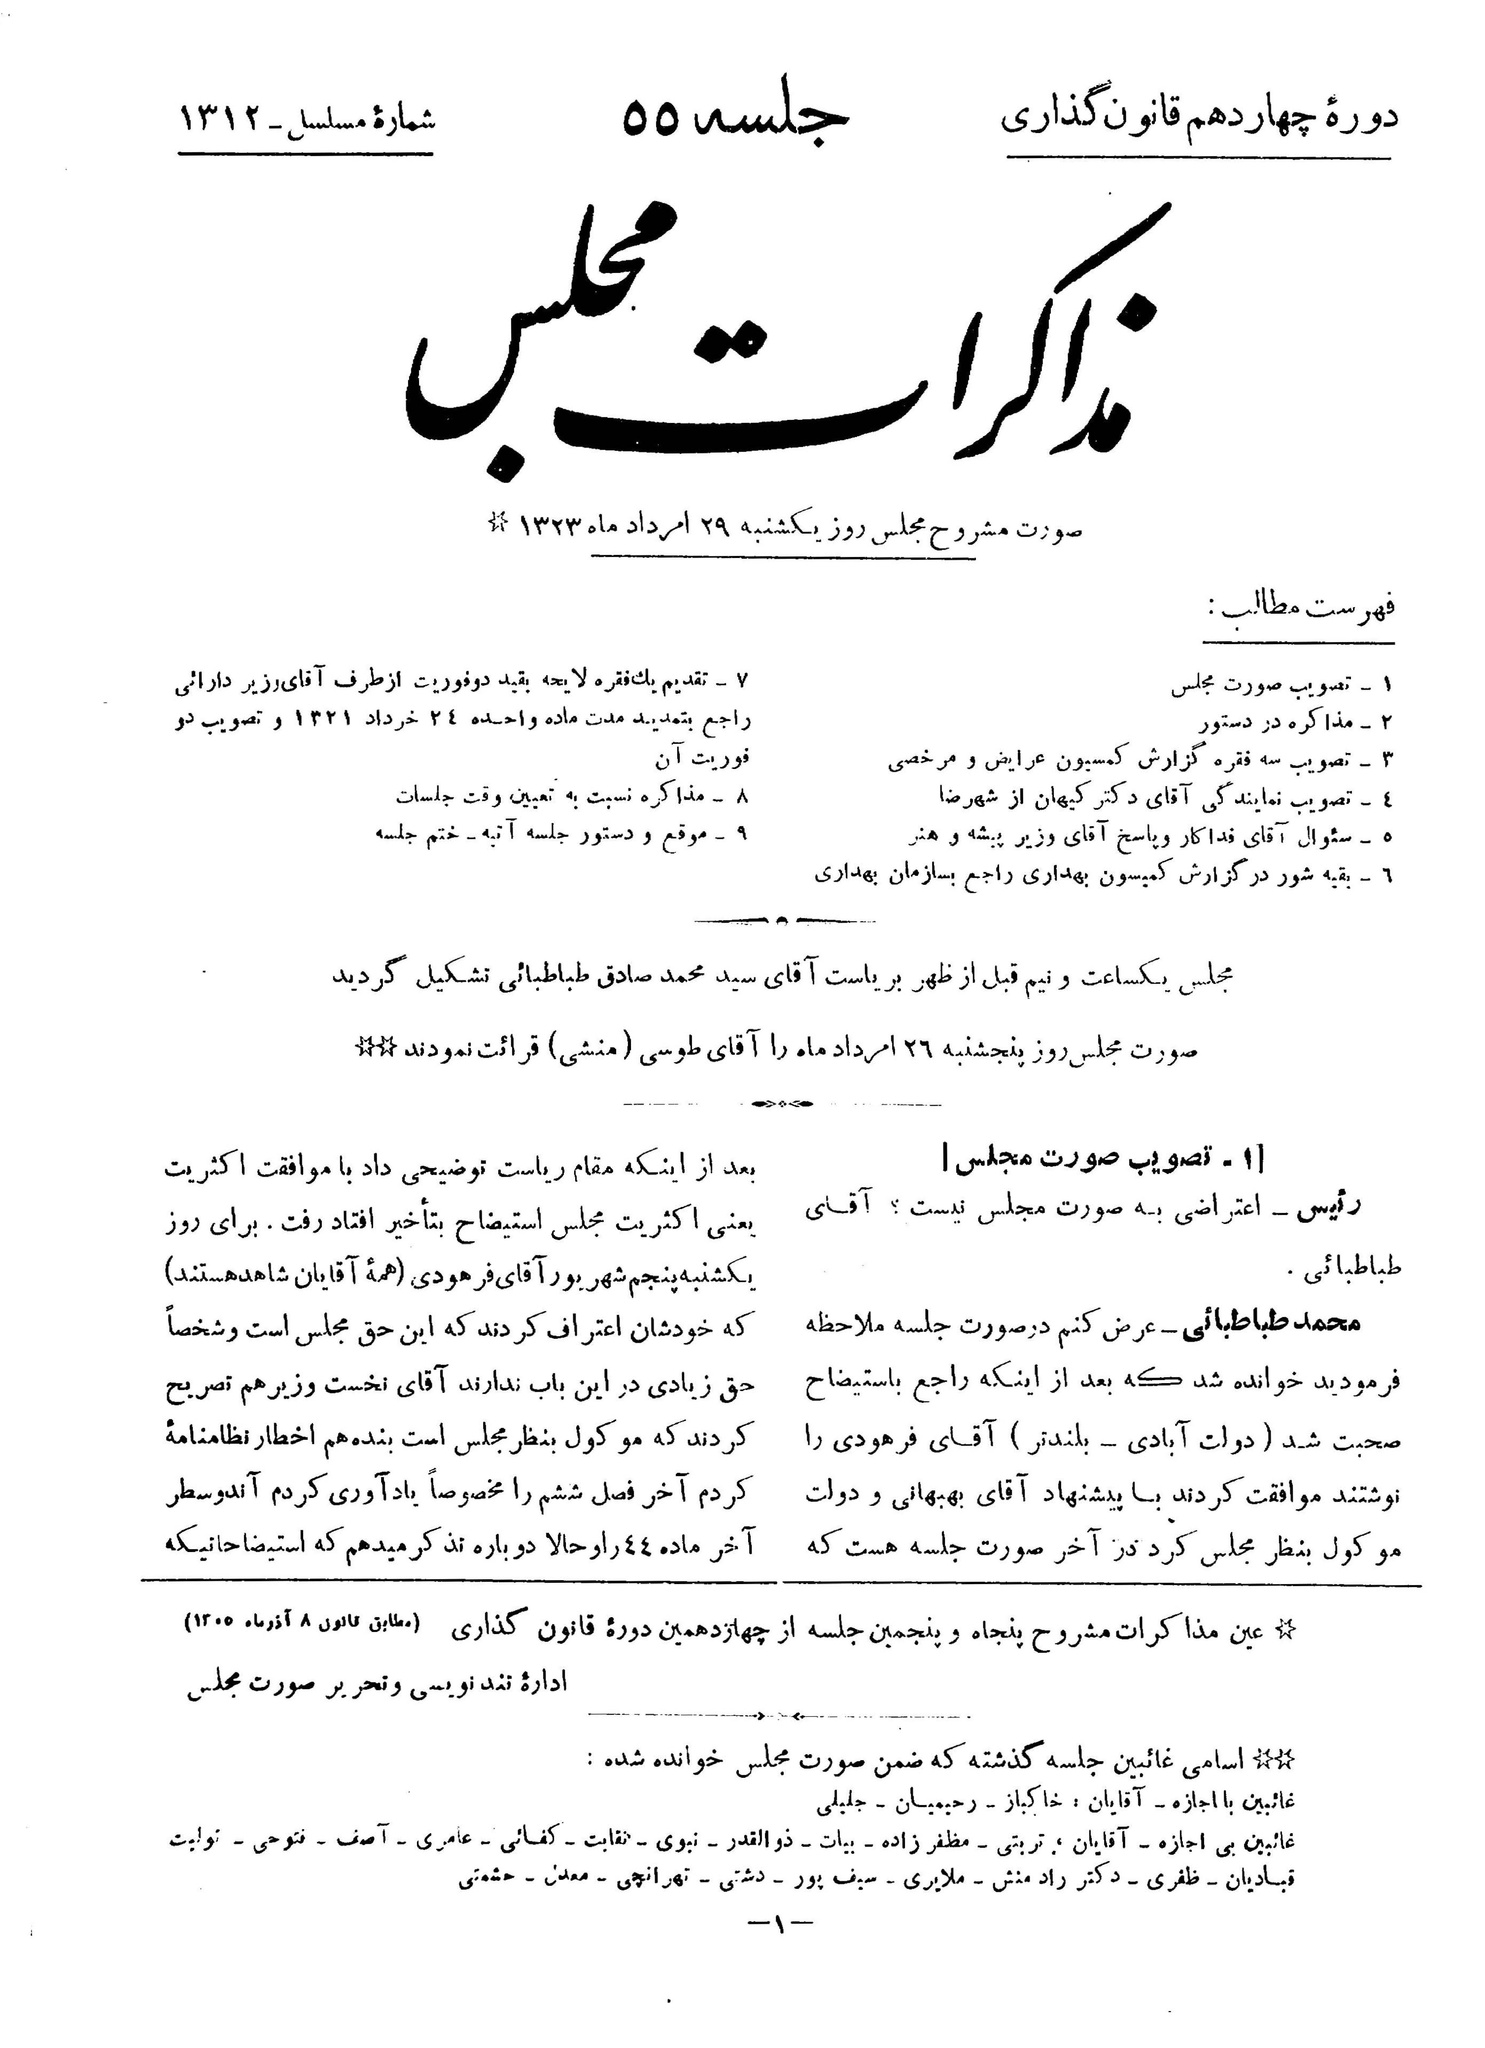 دورهٔ چهاردهم قانون گذاری
جلسه ۵۵
شمارهٔ مسلسل ـ ۱۳۱۲
مذاکرات مجلس
صورت مشروح مجلس روز یکشنبه ۲۹ امرداد ماه ۱۳۲۳ ☆
فهرست مطالب :
۱ ـ تصویب صورت مجلس
۲ ـ مذاکره در دستور
۳ ـ تصویب سه فقره گزارش کمسیون عرایض و مرخصی
٤ ـ تصویب نمایندگی آقای دکتر کیهان از شهرضا
۵ ـ سئوال آقای فداکار و پاسخ آقای وزیر پیشه و هنر
٦ ـ بقیه شور در گزارش کمیسون بهداری راجع بسازمان بهداری
۷ ـ تقدیم یك فقره لایحه بقید دو فوریت از طرف آقای رزیر دارائی
راجع بتمدید مدت ماده واحده ۲٤ خرداد ۱۳۲۱ و تصویب دو
فوریت آن
۸ ـ مذاکره نسبت به تعیین وقت جلسات
۹ ـ موقع و دستور جلسه آتیه ـ ختم جلسه
مجلس یکساعت و نیم قبل از ظهر بریاست آقای سید محمد صادق طباطبائی تشکیل گردید
صورت مجلس روز پنجشنبه ۲٦ امرداد ماه را آقای طوسی (منشی) قرائت نمودند ☆☆
[۱ ـ تصویب صورت مجلس]
رئیس ـ اعتراضی به صورت مجلس نیست ؛ آقای
طباطبائی .
محمد طباطبائی ـ عرض کنم درصورت جلسه ملاحظه
فرمودید خوانده شد که بعد از اینکه راجع باستیضاح
صحبت شد ( دولت آبادی ـ بلندتر ) آقای فرهودی را
نوشتند موافقت کردند با پیشنهاد آقای بهبهانی و دولت
موکول بنظر مجلس کرد در آخر صورت جلسه هست که
بعد از اینکه مقام ریاست توضیحی داد با موافقت اکثریت
یعنی اکثریت مجلس استیضاح بتأخیر افتاد رفت . برای روز
یکشنبه پنجم شهریور آقای فرهودی (همهٔ آقایان شاهد هستند)
که خودشان اعتراف کردند که این حق مجلس است و شخصاً
حق زیادی در این باب ندارند آقای نخست وزیر هم تصریح
کردند که موکول بنظر مجلس است بنده هم اخطار نظامنامهٔ
کردم آخر فصل ششم را مخصوصاً یادآوری کردم آندوسطر
آخر ماده ٤٤ را و حالا دوباره تذکر میدهم که استیضاحاتیکه
☆ عین مذاکرات مشروح پنجاه و پنجمین جلسه از چهاردهمین دورهٔ قانون گذاری (مطابق قانون ۸ آذرماه ۱۳۰۵)
ادارهٔ تند نویسی و تحریر صورت مجلس
☆☆ اسامی غائبین جلسه گذشته که ضمن صورت مجلس خوانده شده :
غائبین با اجازه ـ آقایان : خاکباز ـ رحیمیان ـ جلیلی
غائبین بی اجازه ـ آقایان ؛ تربتی ـ مظفرزاده ـ بیات ـ ذوالقدر ـ نبوی ـ نقابت ـ کفائی ـ عامری ـ آصف ـ فتوحی ـ تولیت
قبادیان ـ ظفری ـ دکتر رادمنش ـ ملایری ـ سیف پور ـ دشتی ـ تهرانچی ـ معدل ـ حشمتی
ـ۱ـ